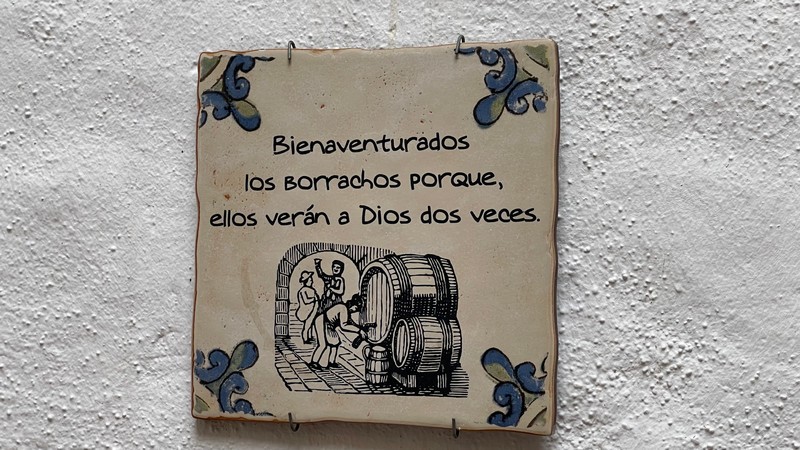 Bienaventurados
los Borrachos porque,
ellos verán a Dios dos veces.